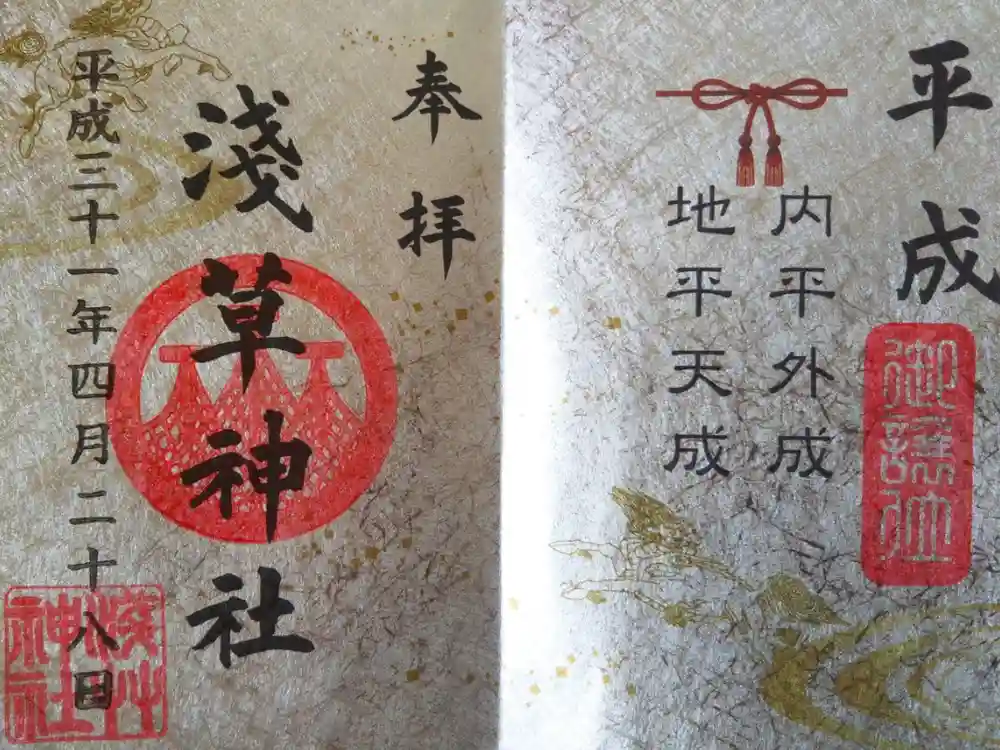 平成
御譲位
内平外成
地平天成
奉拝
淺草神社
平成三十一年四月二十八日
淺艸
神社